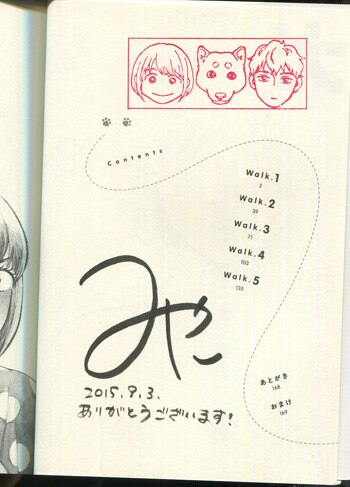 Contents
Walk.1
3
Walk.2
39
Walk.3
71
Walk.4
103
Walk.5
135
みやこ
2015.9.3.
ありがとうございます!
あとがき
168
おまけ
169